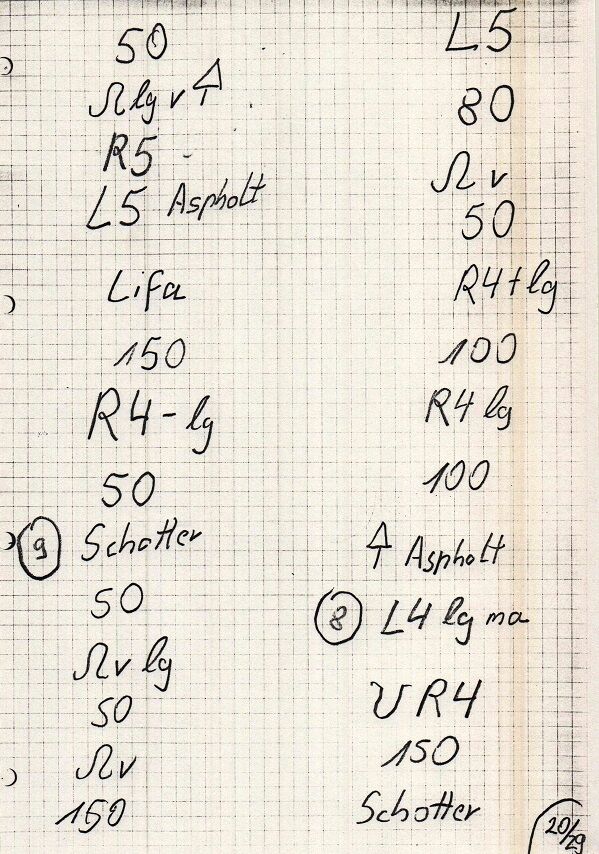 50
Ω lg v ↑
R5
L5 Asphalt
Lifa
150
R4 - lg
50
9 Schotter
50
Ω v lg
50
Ω v
150
L5
80
Ω v
50
R4 + lg
100
R4 lg
100
↑ Asphalt
8 L4 lg ma
U R4
150
Schotter
20/29